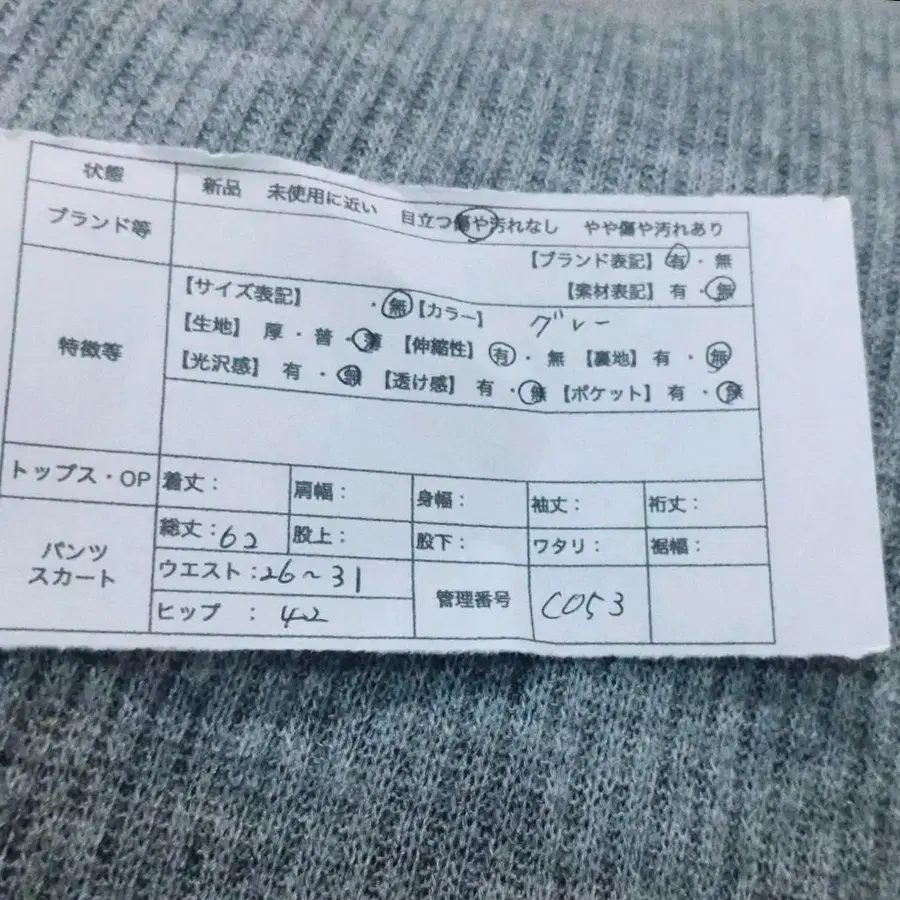 状態 新品 未使用に近い 目立つ傷や汚れなし やや傷や汚れあり
ブランド等 【ブランド表記】 有・無
【素材表記】 有・無
特徴等 【サイズ表記】 ・無 【カラー】 グレー
【生地】 厚・普・薄 【伸縮性】 有・無 【裏地】 有・無
【光沢感】 有・無 【透け感】 有・無 【ポケット】 有・無
トップス・OP 着丈: 肩幅: 身幅: 袖丈: 裄丈:
パンツ スカート 総丈:62 股上: 股下: ワタリ: 裾幅:
ウエスト:26~31 管理番号 C053
ヒップ : 42